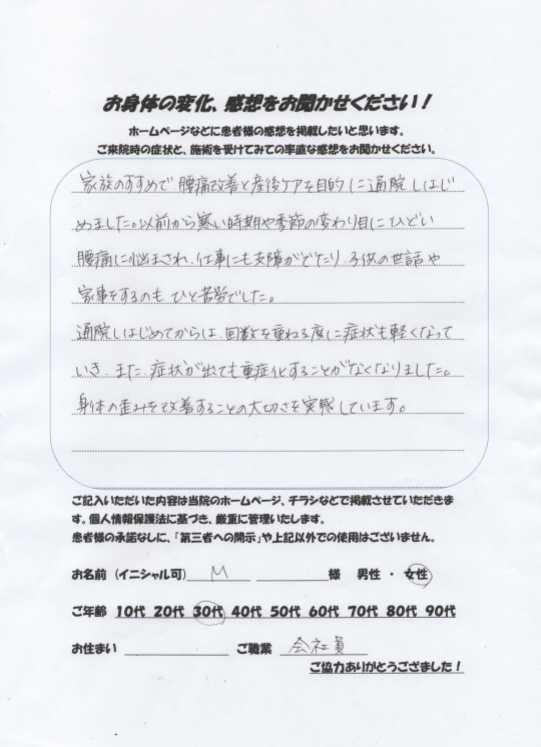 お身体の変化、感想をお聞かせください！
ホームページなどに患者様の感想を掲載したいと思います。
ご来院時の症状と、施術を受けてみての率直な感想をお聞かせください。
家族のすすめで腰痛改善と産後ケアを目的に通院しはじ
めました。以前から寒い時期や季節の変わり目にひどい
腰痛に悩まされ、仕事にも支障がでたり、子供の世話や
家事をするのもひと苦労でした。
通院しはじめてからは、回数を重ねる度に症状も軽くなって
いき、また、症状が出ても重症化することがなくなりました。
身体の歪みを改善することの大切さを実感しています。
ご記入いただいた内容は当院のホームページ、チラシなどで掲載させていただきま
す。個人情報保護法に基づき、厳重に管理いたします。
患者様の承諾なしに、「第三者への開示」や上記以外での使用はございません。
お名前（イニシャル可） M 様 男性 ・ 女性
ご年齢 10代 20代 30代 40代 50代 60代 70代 80代 90代
お住まい ご職業 会社員
ご協力ありがとうござました！